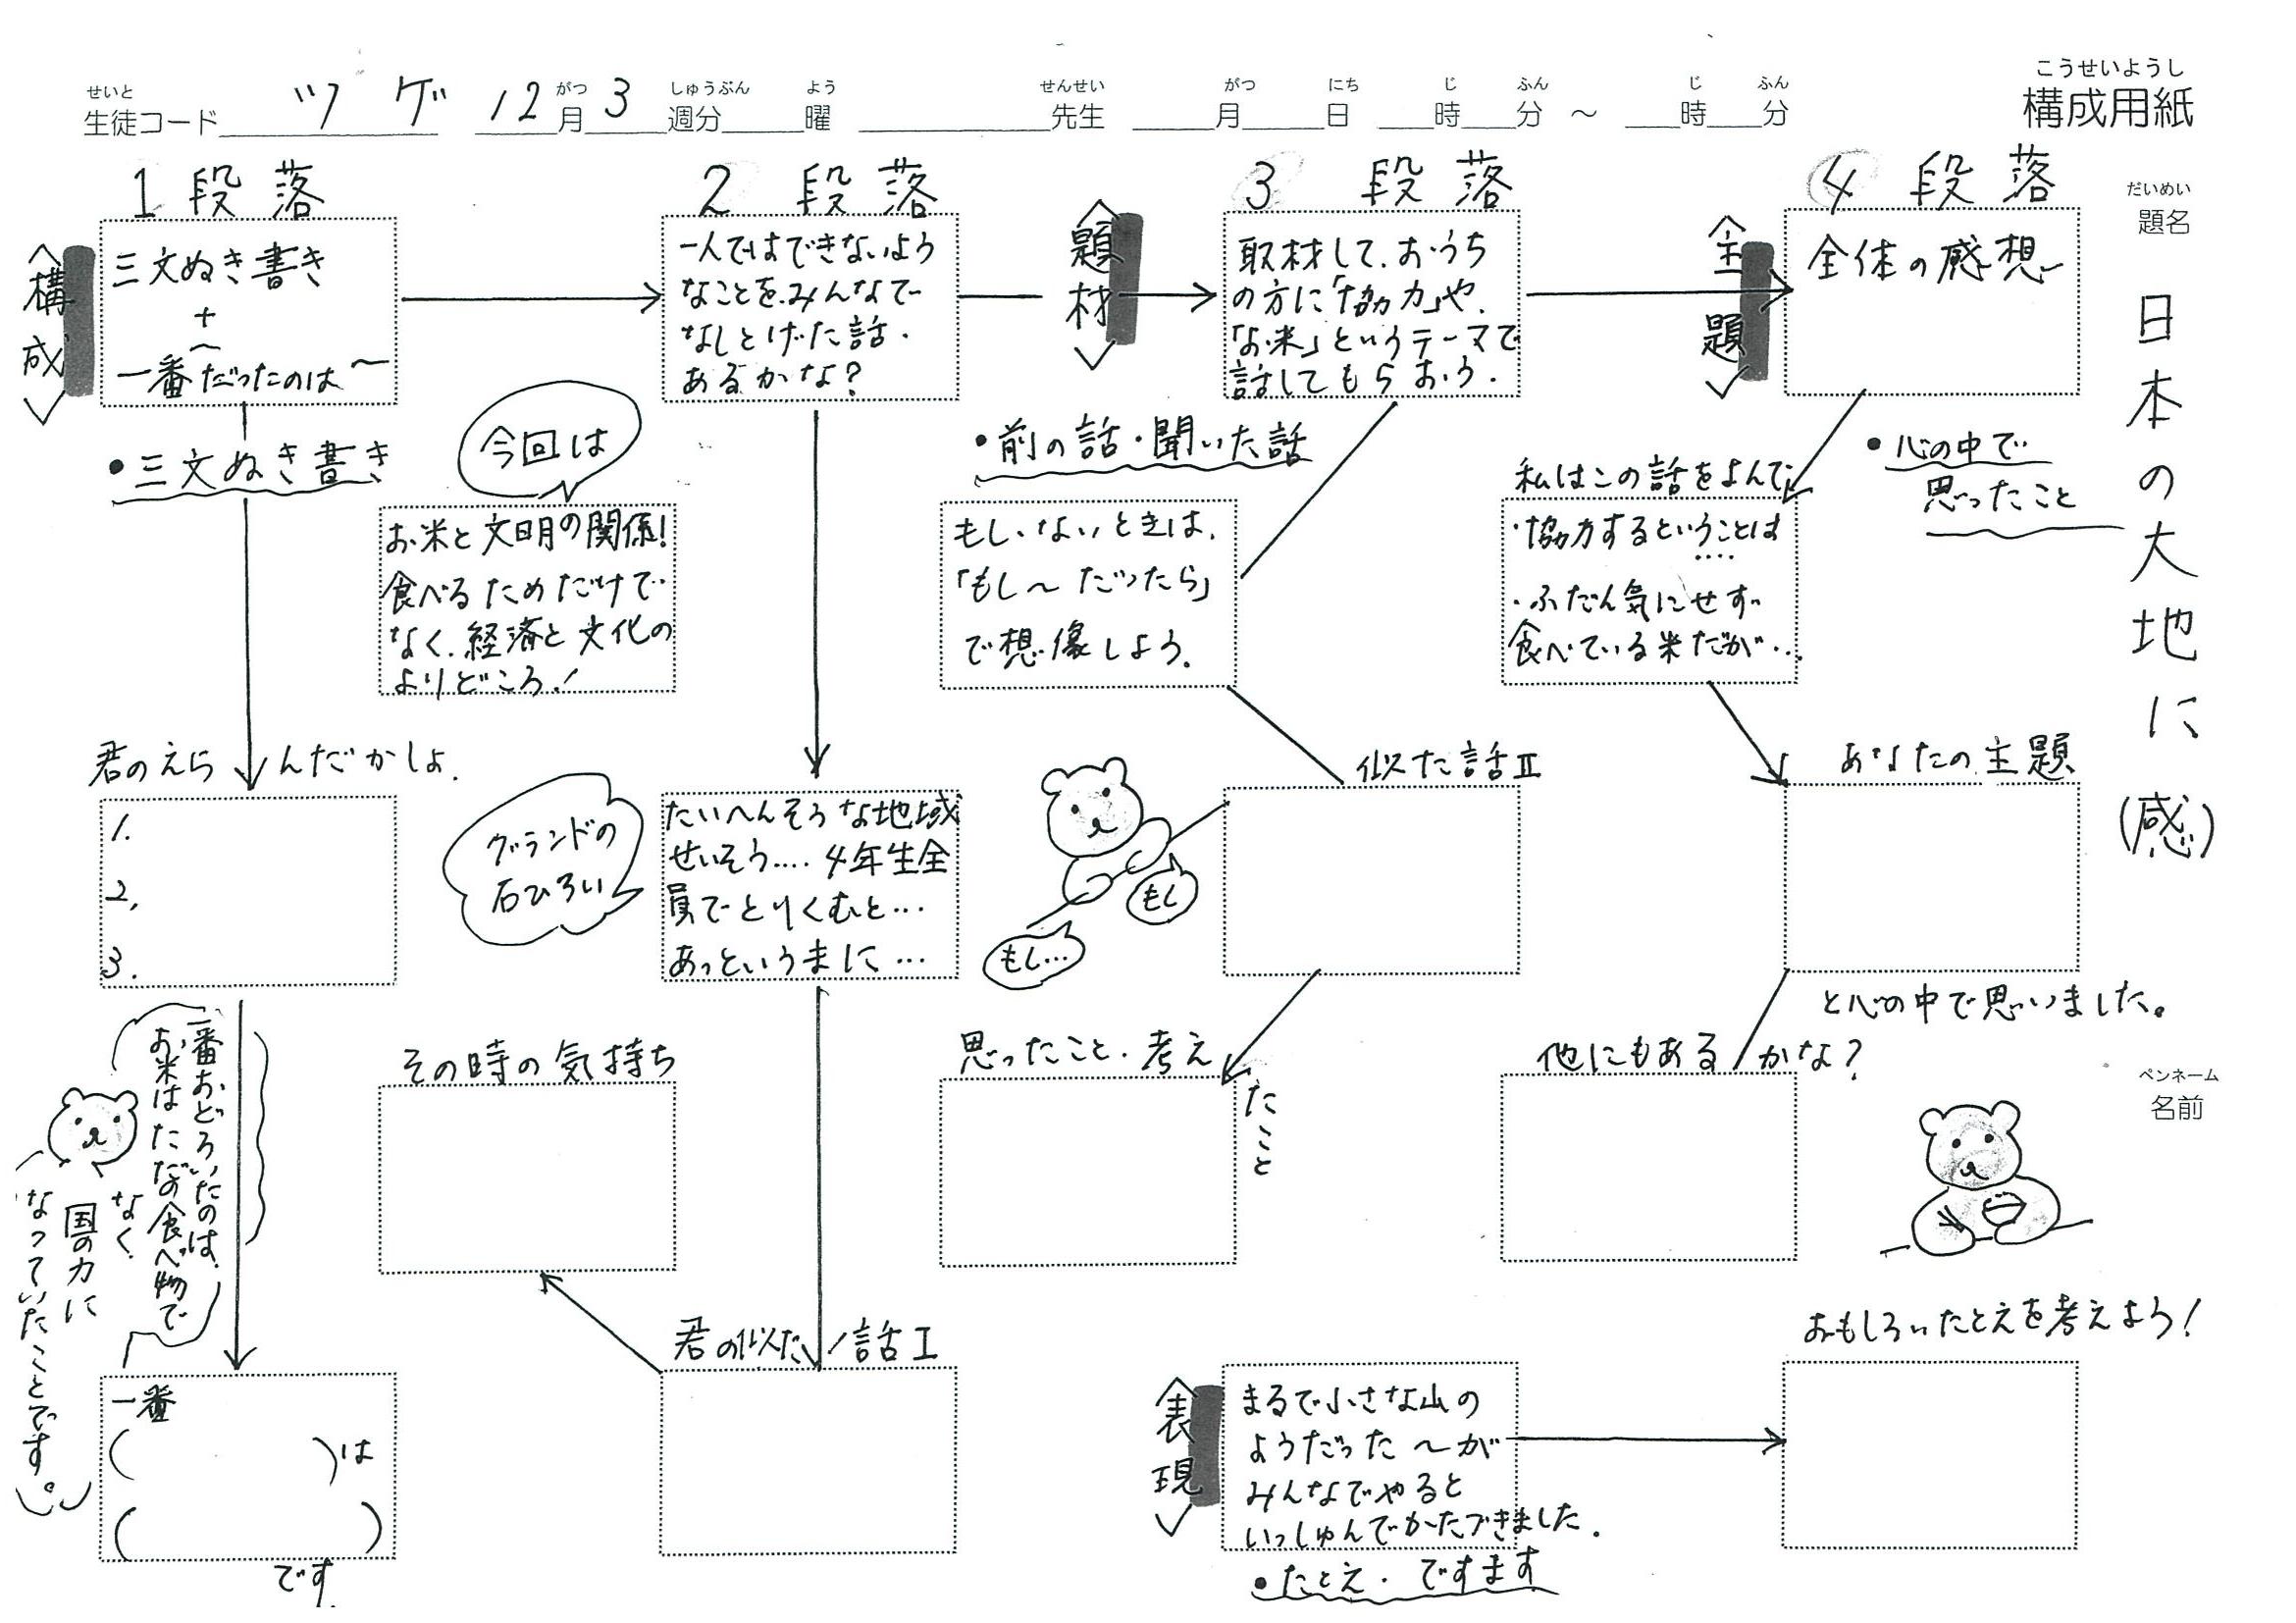 せいと
生徒コード ツゲ 12月3週分 曜 先生 月 日 時 分 ～ 時 分
がつ しゅうぶん よう せんせい がつ にち じ ふん じ ふん
こうせいようし
構成用紙
だいめい
題名
日本の大地に(感)
ペンネーム
名前
1段落
<構成>
三文ぬき書き
+
一番だったのは〜
•三文ぬき書き
君のえらんだかしょ.
1.
2.
3.
一番おどろいたのは、
お米はただの食べ物で
なく、
国の力に
なっていたことです。
一番
( )は
( )
です.
2段落
一人ではできないよう
なことを、みんなで
なしとげた話.
あるかな?
今回は
お米と文明の関係!
食べるためだけで
なく、経済と文化の
よりどころ!
グランドの
石ひろい
たいへんそうな地域
せいそう....4年生全
員でとりくむと...
あっというまに...
その時の気持ち
君の似た話Ⅰ
<題材>
3段落
取材して、おうち
の方に「協力」や、
「お米」というテーマで
話してもらおう.
•前の話・聞いた話
もし、ないときは、
「もし〜だったら」
で想像しよう.
似た話Ⅱ
もし
もし...
思ったこと・考え
たこと
<主題>
4段落
全体の感想
•心の中で
思ったこと
私はこの話をよんで、
・協力するということは
....
・ふだん気にせず
食べている米だが...
あなたの主題
と心の中で思いました。
他にもあるかな?
<表現>
まるで小さな山の
ようだった〜が
みんなでやると
いっしゅんでかたづきました.
•たとえ.ですます
おもしろいたとえを考えよう!